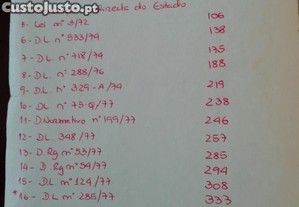 CustoJusto.pt
Directa do Estado
5- Lei nº 3/72 106
6- D.L. nº 533/74 138
7- DL nº 718/74 175
8- DL nº 288/76 188
9- DL nº 329-A/74 219
10- DL nº 75-Q/77 238
11- D Normativo nº 199/77 246
12- DL 348/77 257
13- D. Rg nº 53/77 285
14- D Rg nº 54/77 294
15- DL nº 124/77 308
*16- DL nº 285/77 333